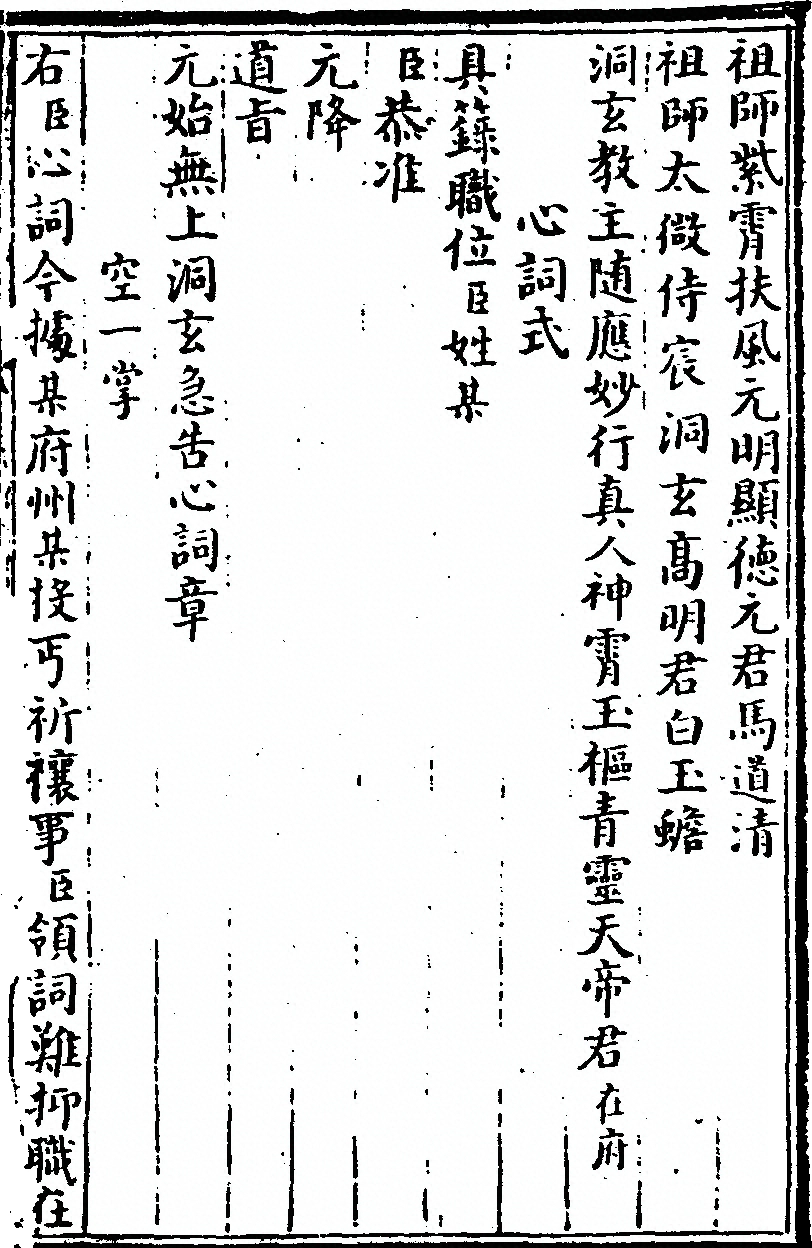 祖師紫霄扶風元明顯德元君馬道清
祖師太微侍宸洞玄高明君白玉蟾
洞玄教主随應妙行真人神霄玉樞青靈天帝君在府
心詞式
具籙職位臣姓某
臣恭准
元降
道旨
元始無上洞玄急告心詞章
空一掌
右臣心詞今據某府州某投丐祈禳事臣領詞難抑職在